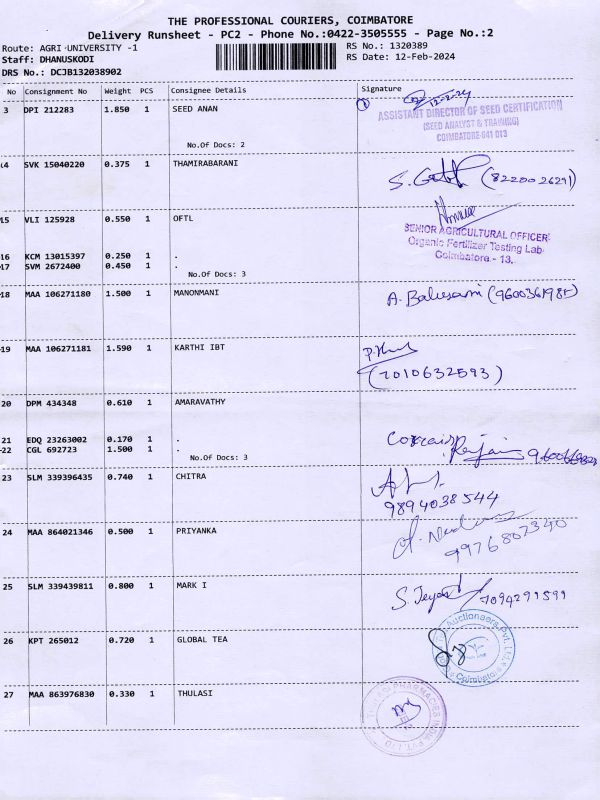 THE PROFESSIONAL COURIERS, COIMBATORE
Delivery Runsheet - PC2 - Phone No.:0422-3505555 - Page No.:2
Route: AGRI UNIVERSITY -1
Staff: DHANUSKODI
DRS No.: DCJB132038902
RS No.: 1320389
RS Date: 12-Feb-2024
No Consignment No Weight PCS Consignee Details Signature
3 DPI 212283 1.850 1 SEED ANAN
12-2-24
ASSISTANT DIRECTOR OF SEED CERTIFICATION
(SEED ANALYST & TRAINING)
COIMBATORE-641 013
No.Of Docs: 2
14 SVK 15040220 0.375 1 THAMIRABARANI
(8220026291)
15 VLI 125928 0.550 1 OFTL
SENIOR AGRICULTURAL OFFICER
Organic Fertilizer Testing Lab
Coimbatore - 13.
16 KCM 13015397 0.250 1 .
17 SVM 2672400 0.450 1 .
No.Of Docs: 3
18 MAA 106271180 1.500 1 MANONMANI
A. Balusami
19 MAA 106271181 1.590 1 KARTHI IBT
(7010632593)
20 DPM 434348 0.610 1 AMARAVATHY
21 EDQ 23263002 0.170 1 .
22 CGL 692723 1.500 1 .
No.Of Docs: 3
23 SLM 339396435 0.740 1 CHITRA
9894038544
24 MAA 864021346 0.500 1 PRIYANKA
9976802340
25 SLM 339439811 0.800 1 MARK I
7094291599
26 KPT 265012 0.720 1 GLOBAL TEA
Auctioneers Pvt. Ltd.
Coimbatore
27 MAA 863976830 0.330 1 THULASI
PHARMACIES INDIA PVT. LTD